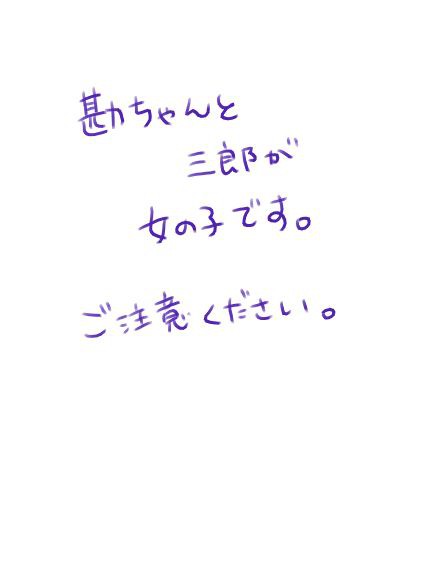 勘ちゃんと
三郎が
女の子です。
ご注意ください。